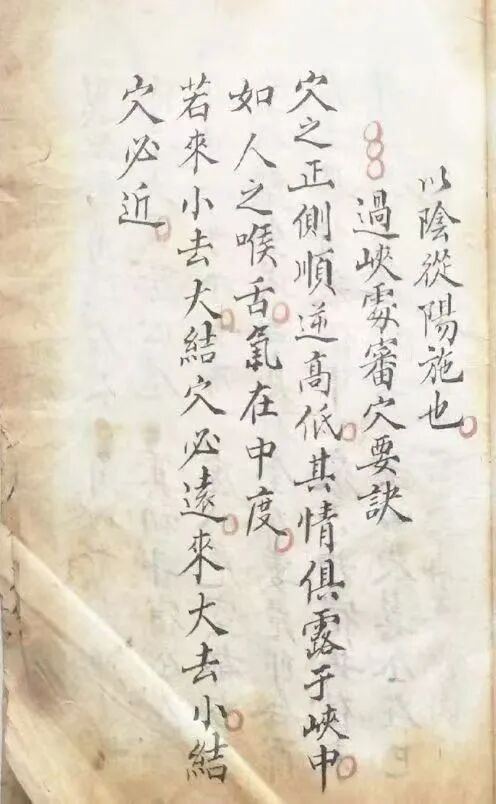 以陰從陽施也
過峽處審穴要訣
穴之正側順逆高低其情俱露于峽中
如人之喉舌氣在中度
若來小去大結穴必遠來大去小結
穴必近